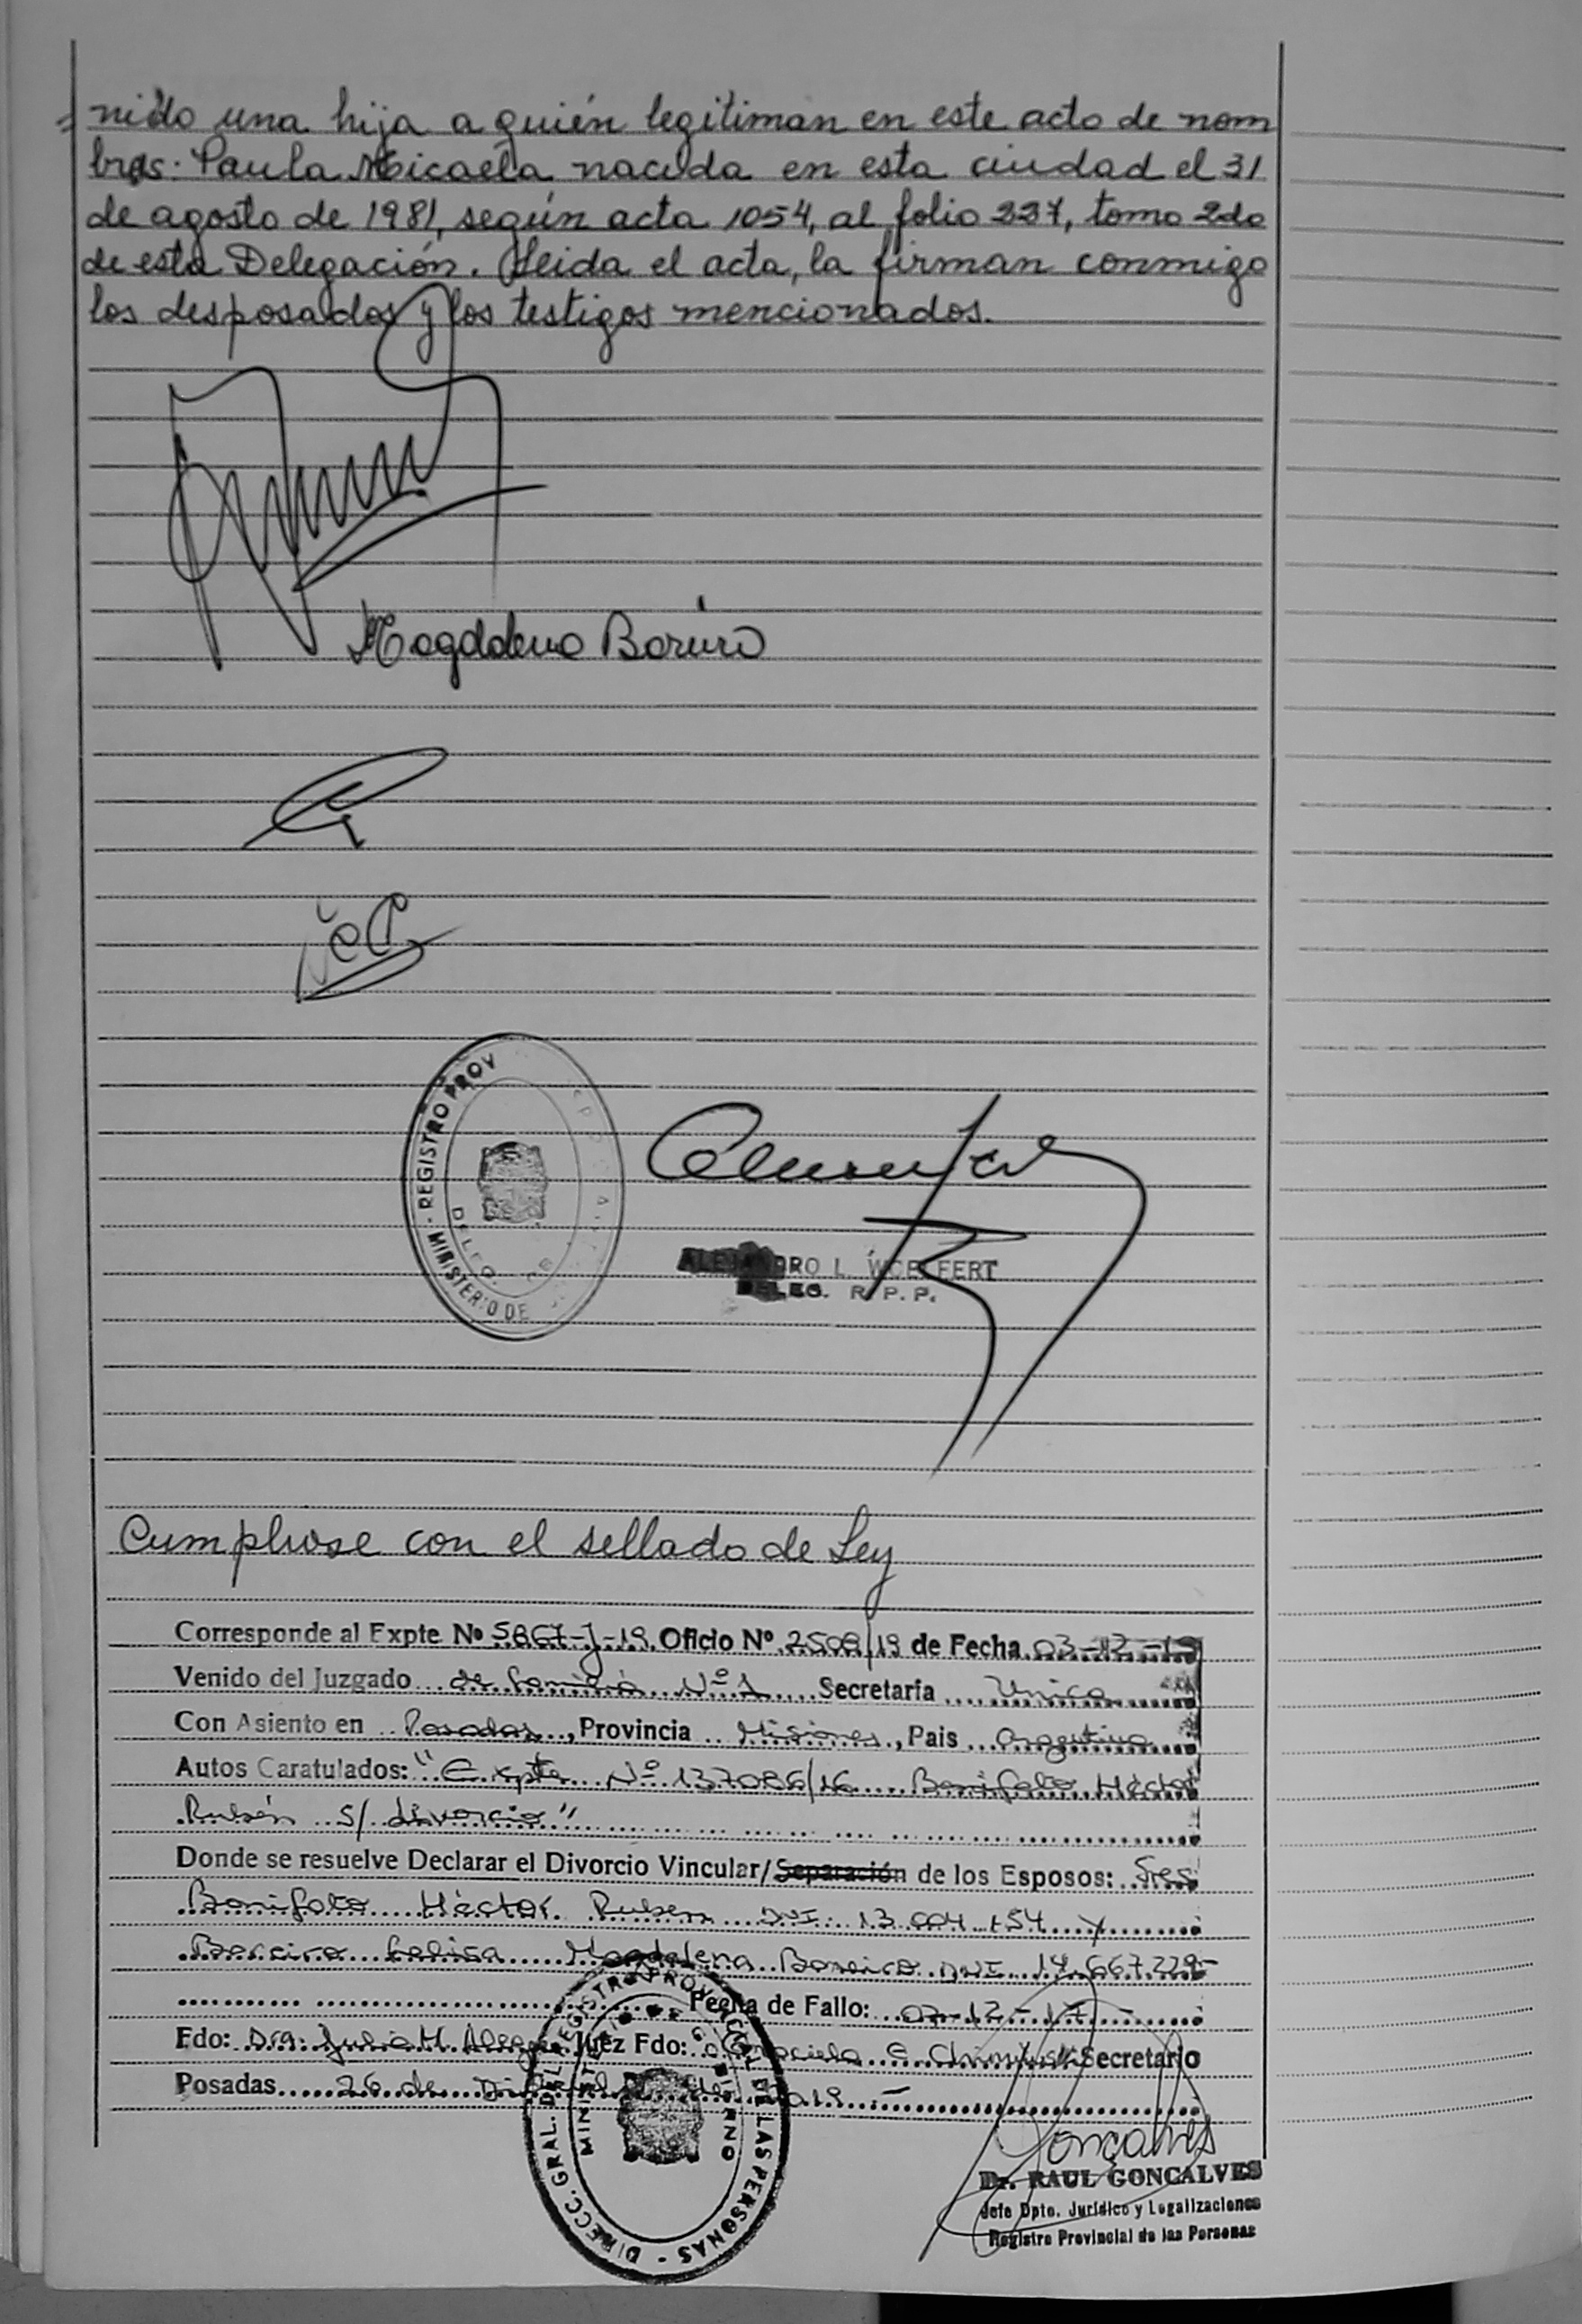 nido una hija a quién legitiman en este acto de nom
bres: Paula Micaela nacida en esta ciudad el 31
de agosto de 1981, según acta 1054, al folio 227, tomo 2do
de esta Delegación. Leida el acta, la firman conmigo
los desposados y los testigos mencionados.
Magdalena
MINISTERIO DE - REGISTRO PROV
DELEG.
ALEJANDRO L. WOELFERT
DELEG. R.P.P.
con el sellado de Ley
Corresponde al Expte Nº 5867-J-19 Oficio Nº 2508/19 de Fecha 03-12-19
Venido del Juzgado de familia Nº 1 Secretaría Unica
Con Asiento en Posadas, Provincia Misiones, Pais Argentina
Autos Caratulados: "Expte Nº 137086/16 Bonifato Héctor
Rubén S/ divorcio"
Donde se resuelve Declarar el Divorcio Vincular/Separación de los Esposos: Sres
Bonifato Héctor Ruben DNI 13.004.154 y
Magdalena DNI 14.667.229-
Fecha de Fallo: 07-12-17
Fdo: Dra. Julia M. Juez Fdo: Graciela Secretario
Posadas 26 de de 2019
DIRECC. GRAL. DEL REGISTRO PROVINCIAL DE LAS PERSONAS -
MINISTERIO DE GOBIERNO
Goncalves
Dr. RAUL GONCALVES
Jefe Dpto. Jurídico y Legalizaciones
Registro Provincial de las Personas